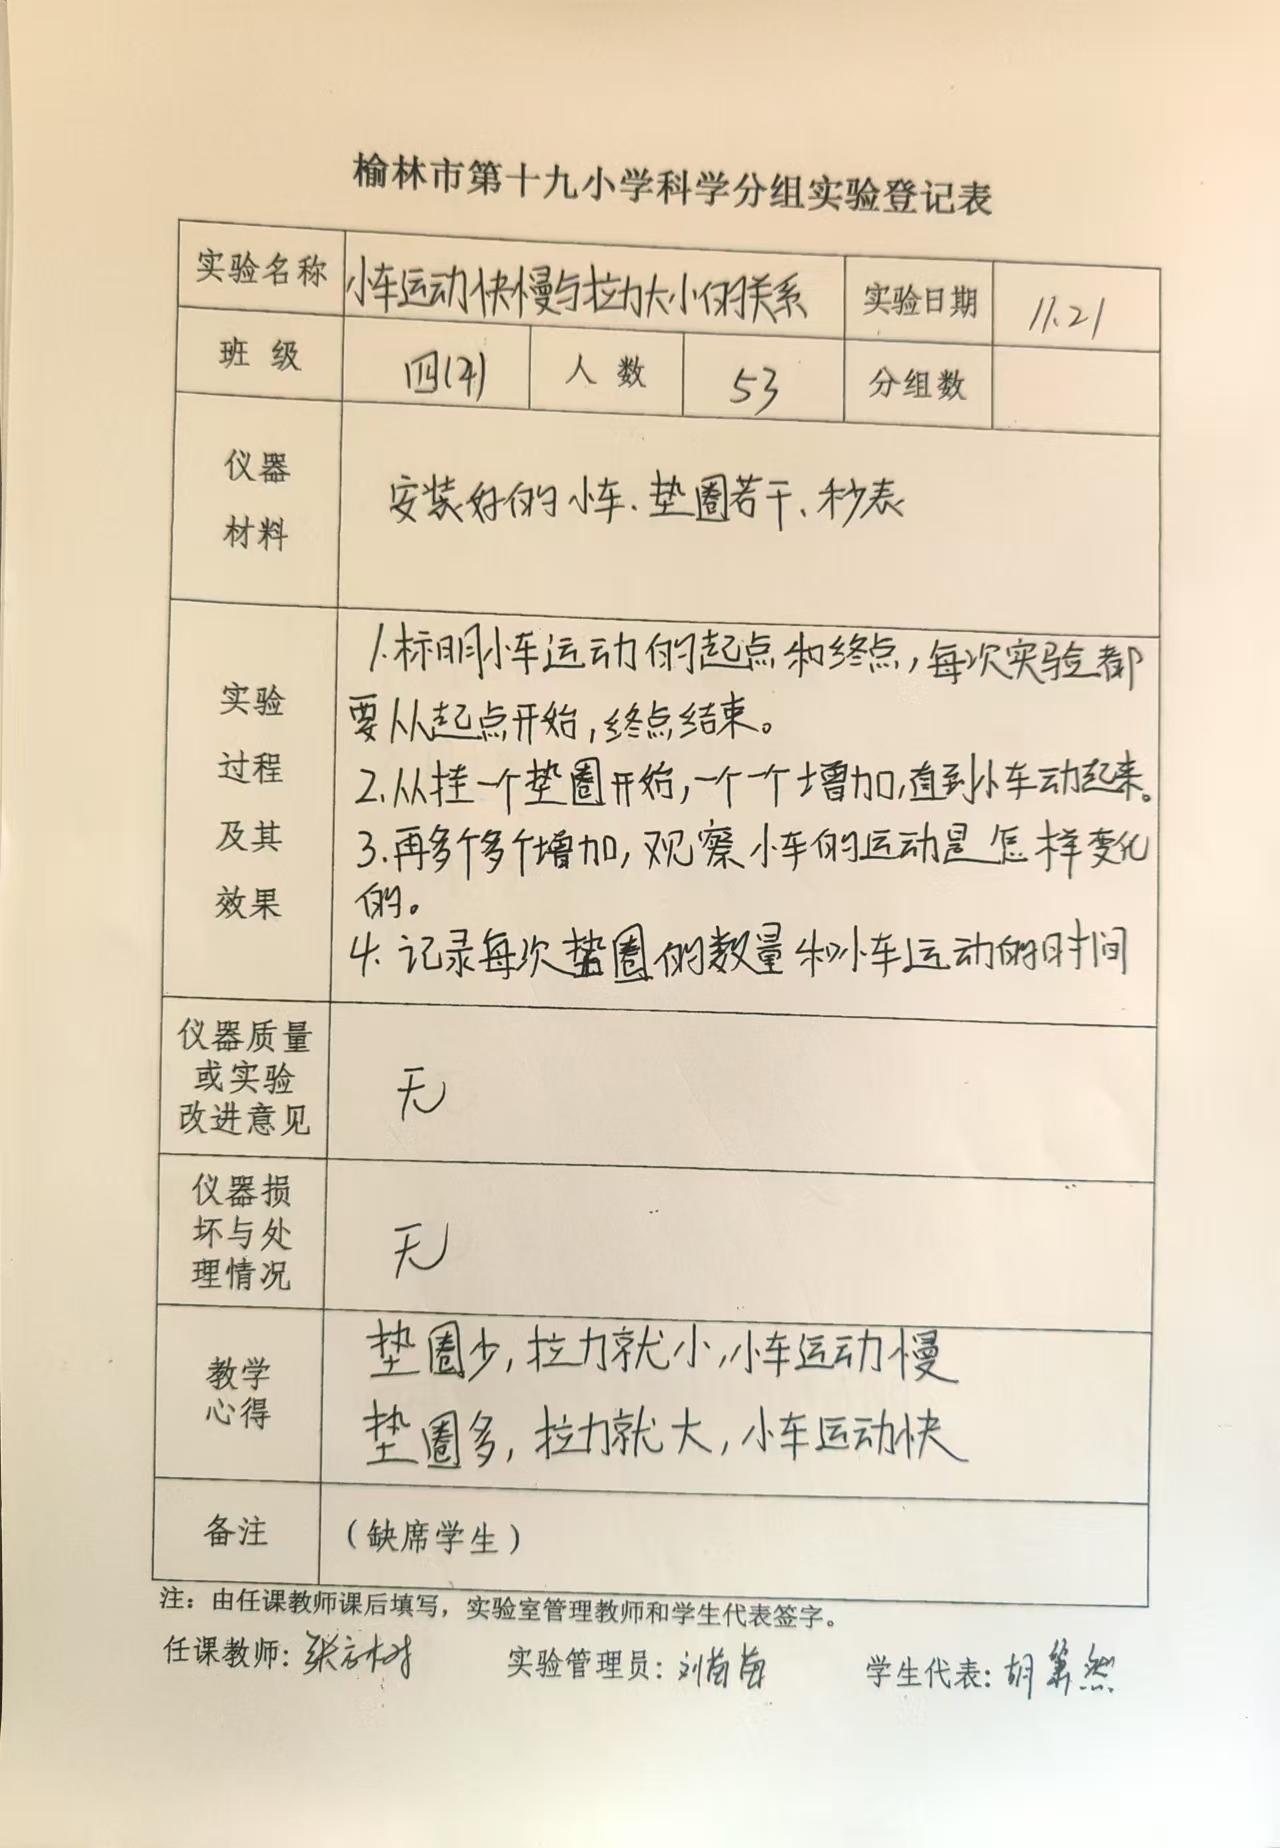 榆林市第十九小学科学分组实验登记表
实验名称 小车运动快慢与拉力大小的关系 实验日期 11.21
班 级 四(4) 人 数 53 分组数
仪器
材料
安装好的小车、垫圈若干、秒表
实验
过程
及其
效果
1.标明小车运动的起点和终点，每次实验都
要从起点开始，终点结束。
2.从挂一个垫圈开始，一个一个增加，直到小车动起来。
3.再多个多个增加，观察小车的运动是怎样变化
的。
4.记录每次垫圈的数量和小车运动的时间
仪器质量
或实验
改进意见
无
仪器损
坏与处
理情况
无
教学
心得
垫圈少，拉力就小，小车运动慢
垫圈多，拉力就大，小车运动快
备注 （缺席学生）
注：由任课教师课后填写，实验室管理教师和学生代表签字。
任课教师： 实验管理员： 学生代表：胡